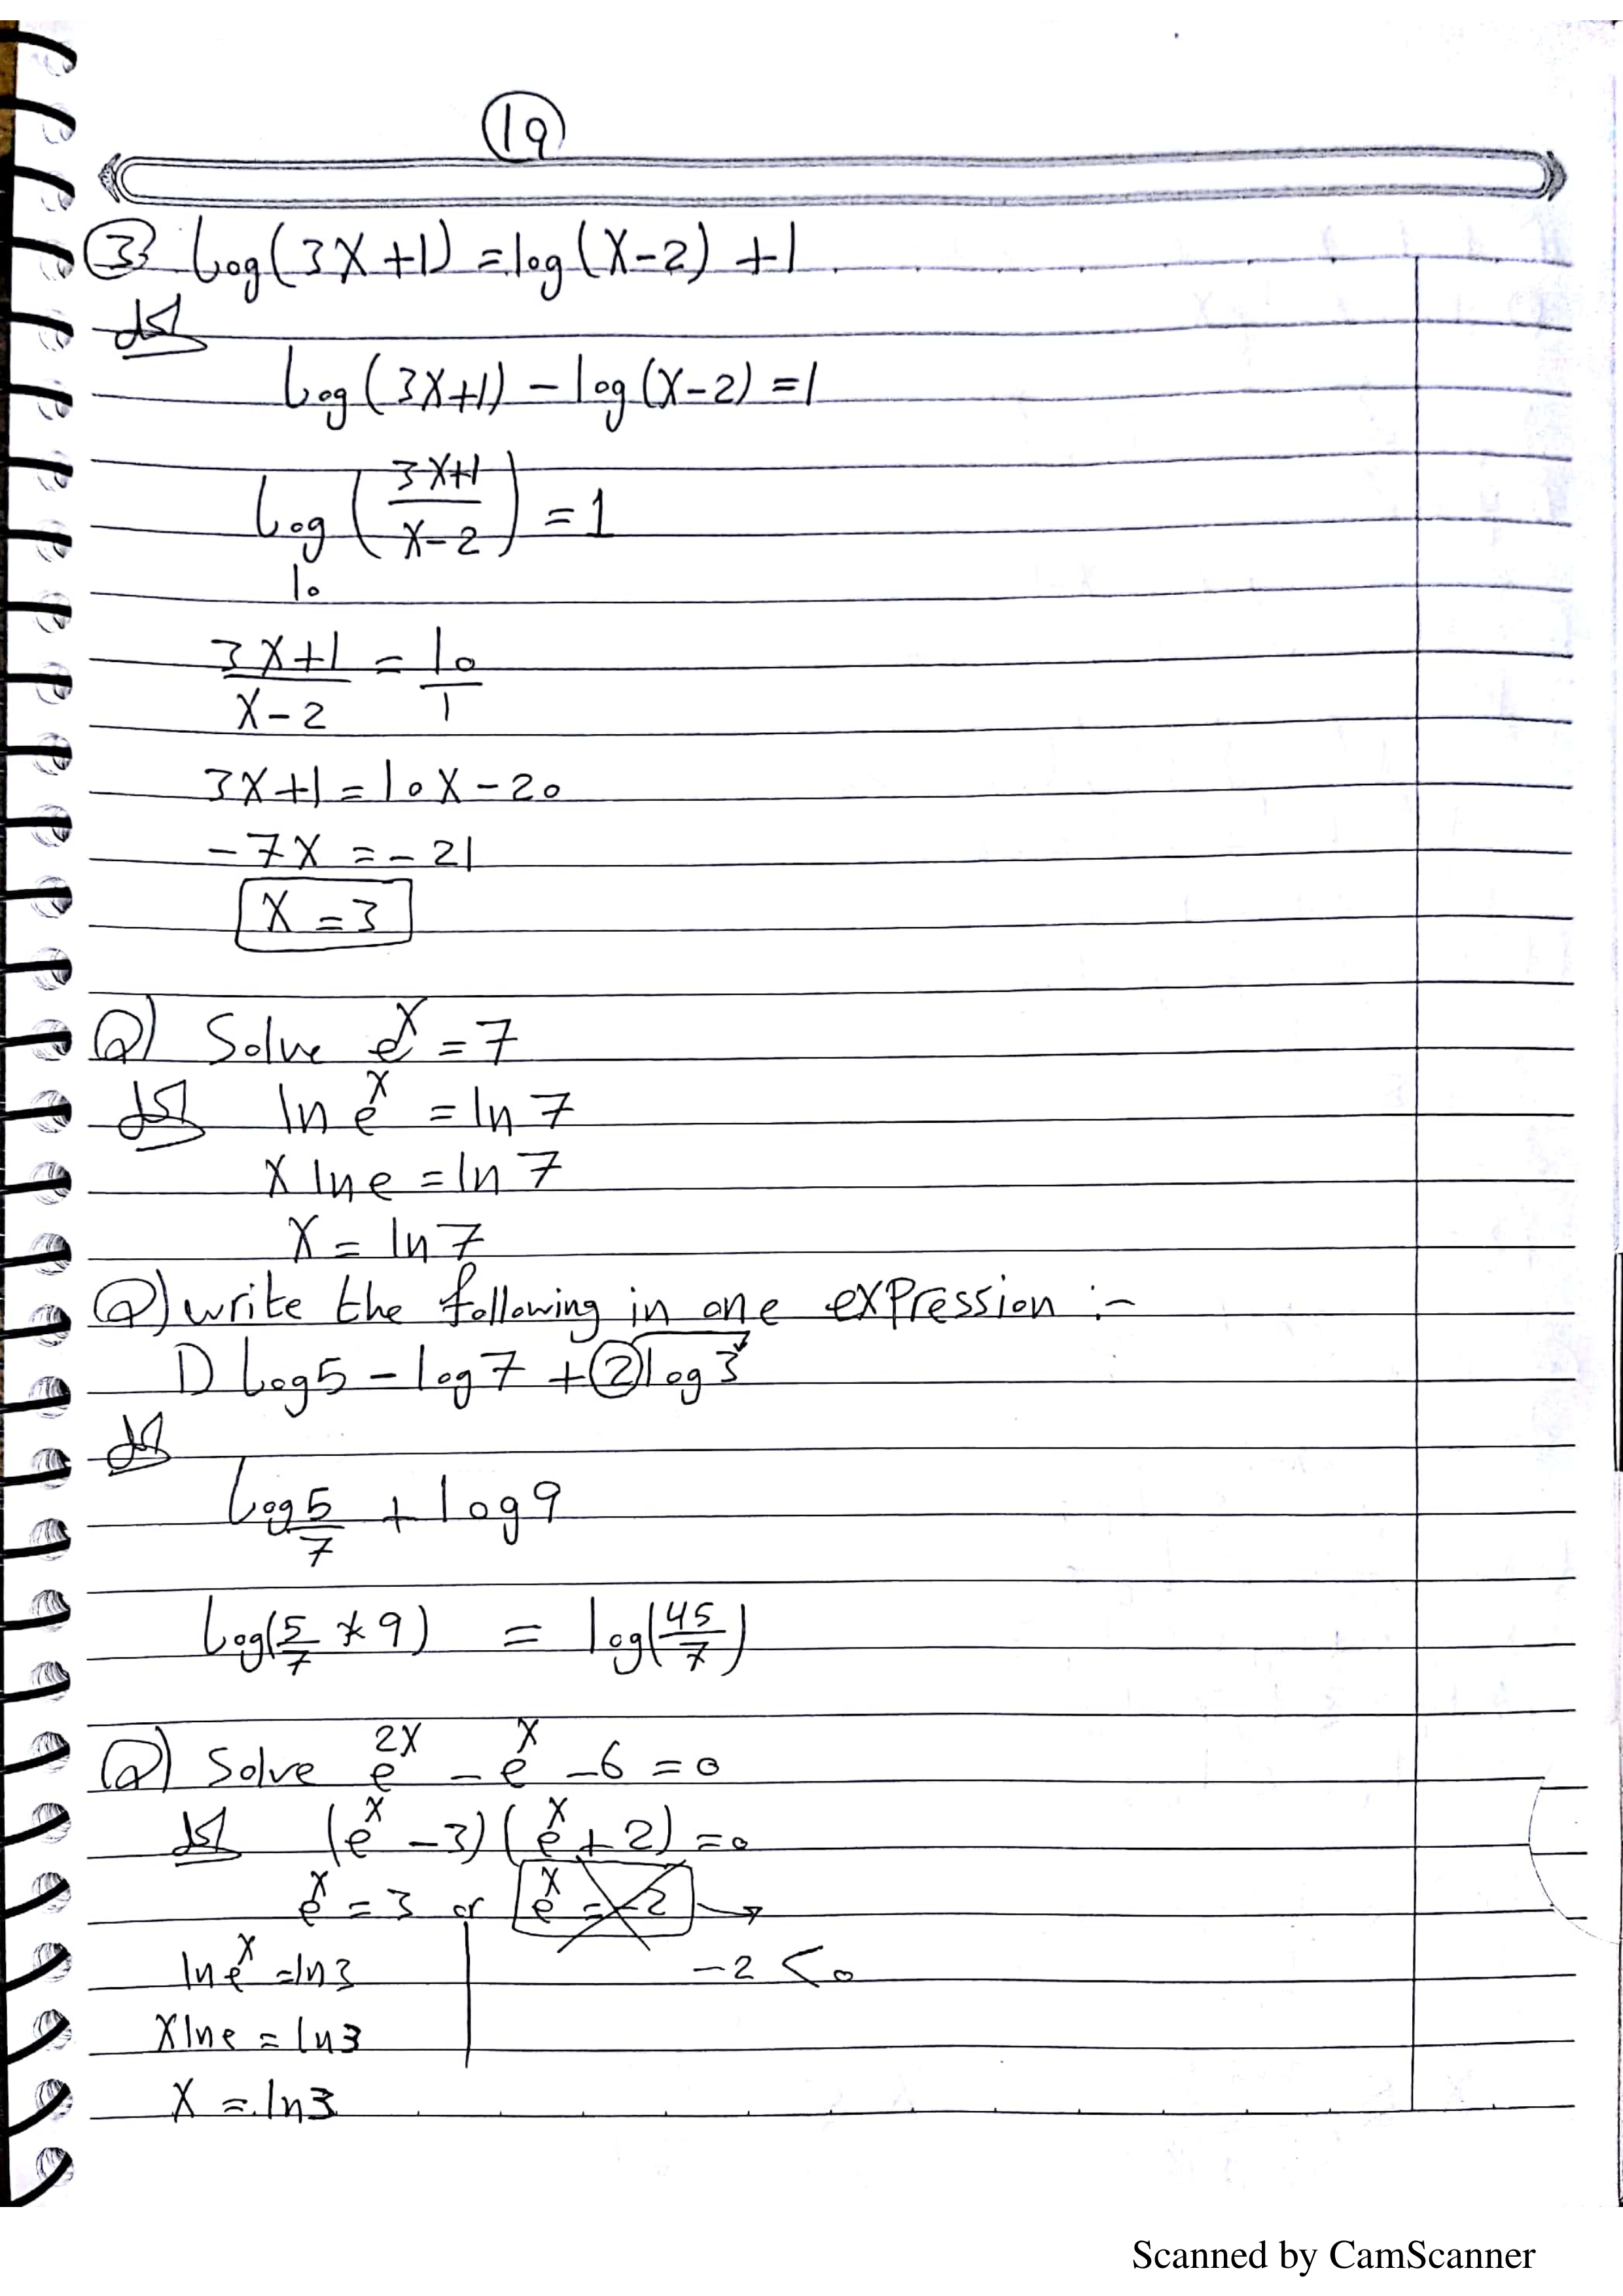 19
3) Log(3x+1) = log(x-2) + 1
الحل
Log(3x+1) - log(x-2) = 1
Log₁₀((3x+1)/(x-2)) = 1
(3x+1)/(x-2) = 10/1
3x+1 = 10x - 20
-7x = -21
x = 3
Q) Solve eˣ = 7
الحل ln eˣ = ln 7
x ln e = ln 7
x = ln 7
Q) write the following in one expression :-
1) Log5 - log7 + 2log3
الحل
Log 5/7 + log 9
Log(5/7 * 9) = log(45/7)
Q) Solve e²ˣ - eˣ - 6 = 0
الحل (eˣ - 3)(eˣ + 2) = 0
eˣ = 3 or eˣ = -2 →
ln eˣ = ln3 -2 < 0
x ln e = ln3
x = ln3
Scanned by CamScanner